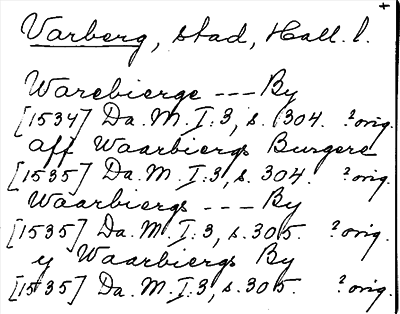 Varberg, stad, Hall. l.
Warebierge --- By
[1534] Da. M. I:3, s. 304. ? orig.
aff Waarbiergs Burgere
[1535] Da. M. I:3, s. 304. ? orig.
Waarbiergs --- By
[1535] Da. M. I:3, s. 305. ? orig.
y Waarbiergs By
[1535] Da. M. I:3, s. 305. ? orig.